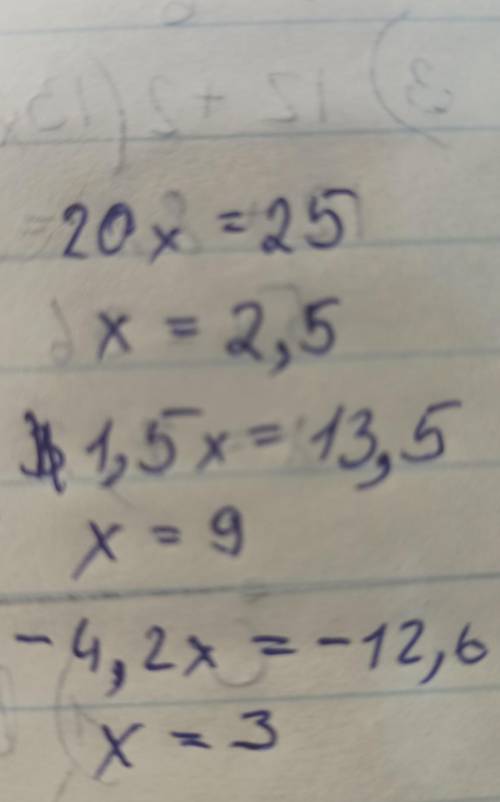 20x = 25
x = 2,5
1,5x = 13,5
x = 9
-4,2x = -12,6
x = 3